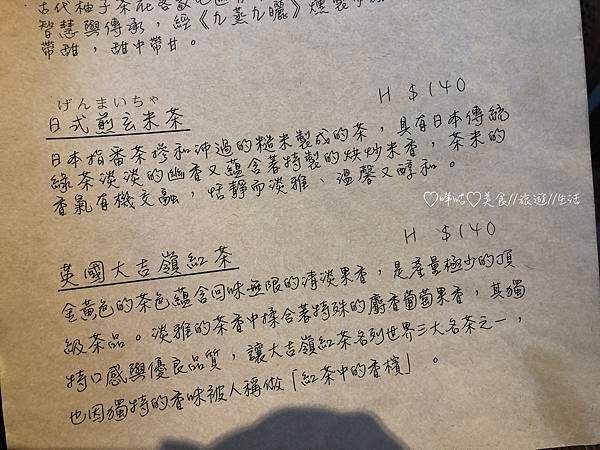 古代柚子茶
智慧與傳承，經《九蒸九曬》燻製
帶甜，甜中帶甘。
げんまいちゃ
日式煎玄米茶 H $140
日本指番茶摻和沖過的糙米製成的茶，具有日本傳統
綠茶淡淡的幽香又蘊含著特製的烘炒米香，茶米的
香氣有機交融，恬靜而淡雅、溫馨又醇和。
♡咩咕♡美食//旅遊//生活
英國大吉嶺紅茶 H $140
金黃色的茶色蘊含回味無限的清淡果香，是產量極少的頂
級茶品。淡雅的茶香中揉合著特殊的麝香葡萄果香，其獨
特口感與優良品質，讓大吉嶺紅茶名列世界三大名茶之一，
也因獨特的香味被人稱做「紅茶中的香檳」。